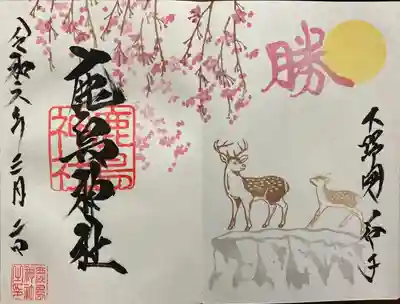 勝
下野国 益子
鹿島神社
鹿島神社
令和六年三月
鹿島神社之印